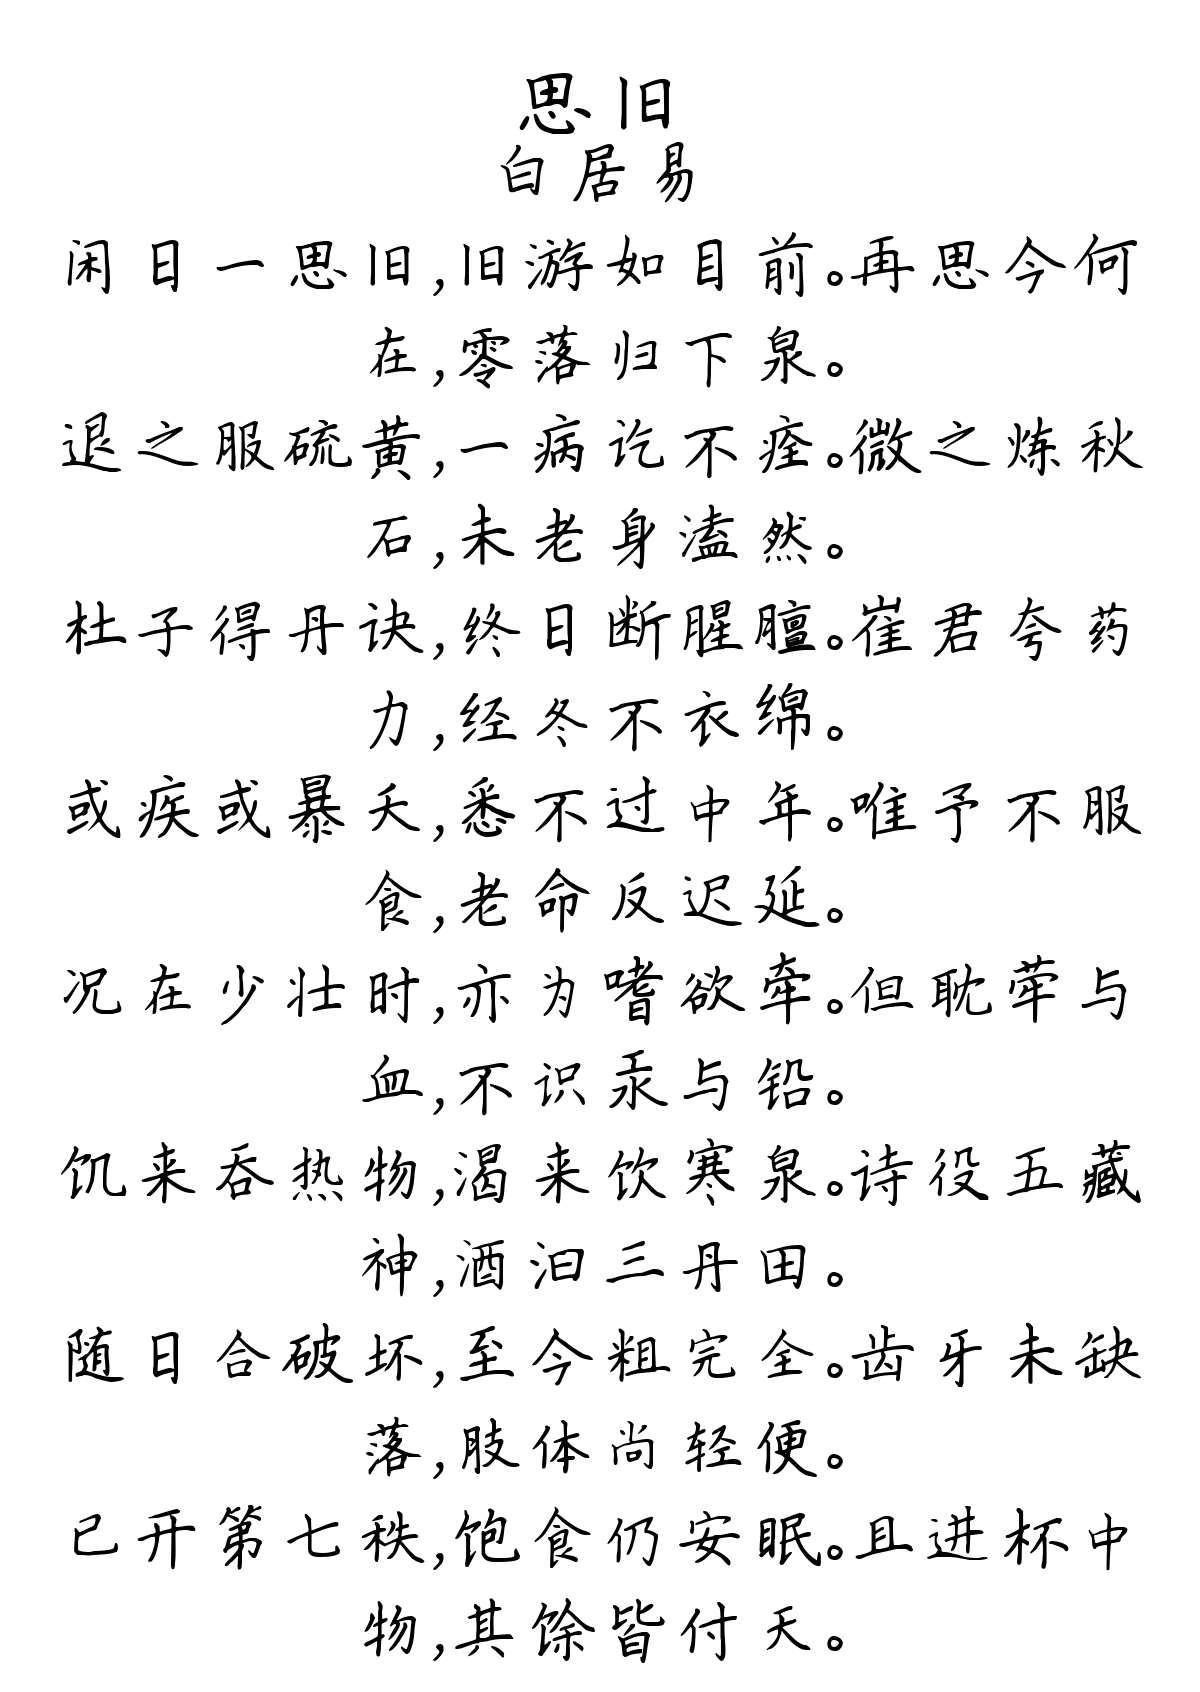 思旧
白居易
闲日一思旧,旧游如目前。再思今何
在,零落归下泉。
退之服硫黄,一病讫不痊。微之炼秋
石,未老身溘然。
杜子得丹诀,终日断腥膻。崔君夸药
力,经冬不衣绵。
或疾或暴夭,悉不过中年。唯予不服
食,老命反迟延。
况在少壮时,亦为嗜欲牵。但耽荤与
血,不识汞与铅。
饥来吞热物,渴来饮寒泉。诗役五藏
神,酒汩三丹田。
随日合破坏,至今粗完全。齿牙未缺
落,肢体尚轻便。
已开第七秩,饱食仍安眠。且进杯中
物,其馀皆付天。